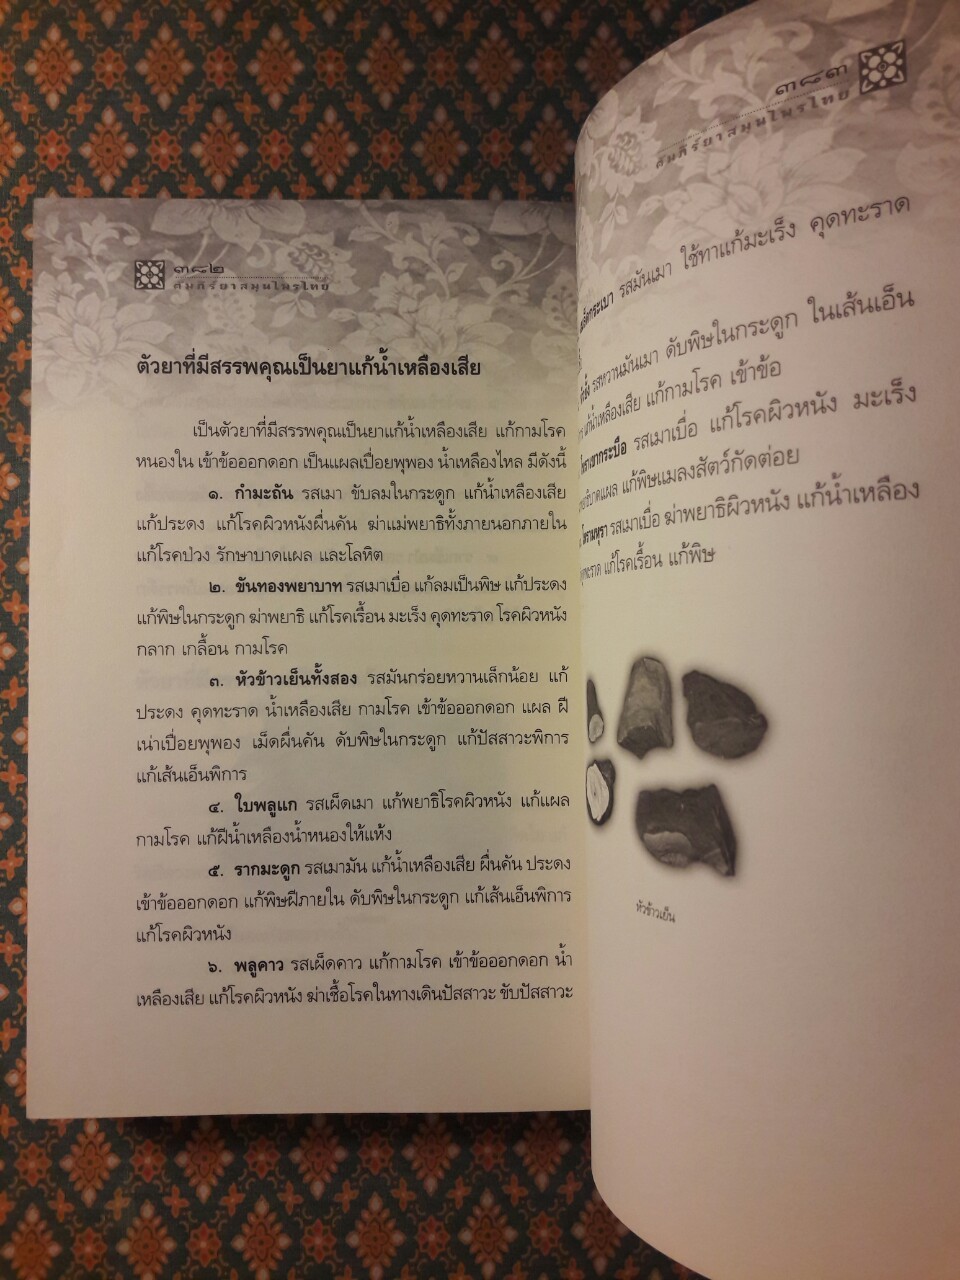 ๓๘๒
คัมภีร์ยาสมุนไพรไทย
ตัวยาที่มีสรรพคุณเป็นยาแก้น้ำเหลืองเสีย
เป็นตัวยาที่มีสรรพคุณเป็นยาแก้น้ำเหลืองเสีย แก้กามโรค
หนองใน เข้าข้อออกดอก เป็นแผลเปื่อยพุพอง น้ำเหลืองไหล มีดังนี้
๑. กำมะถัน รสเมา ขับลมในกระดูก แก้น้ำเหลืองเสีย
แก้ประดง แก้โรคผิวหนังผื่นคัน ฆ่าแม่พยาธิทั้งภายนอกภายใน
แก้โรคป่วง รักษาบาดแผล และโลหิต
๒. ขันทองพยาบาท รสเมาเบื่อ แก้ลมเป็นพิษ แก้ประดง
แก้พิษในกระดูก ฆ่าพยาธิ แก้โรคเรื้อน มะเร็ง คุดทะราด โรคผิวหนัง
กลาก เกลื้อน กามโรค
๓. หัวข้าวเย็นทั้งสอง รสมันกร่อยหวานเล็กน้อย แก้
ประดง คุดทะราด น้ำเหลืองเสีย กามโรค เข้าข้อออกดอก แผล ฝี
เน่าเปื่อยพุพอง เม็ดผื่นคัน ดับพิษในกระดูก แก้ปัสสาวะพิการ
แก้เส้นเอ็นพิการ
๔. ใบพลูแก รสเผ็ดเมา แก้พยาธิโรคผิวหนัง แก้แผล
กามโรค แก้ฝีน้ำเหลืองน้ำหนองให้แห้ง
๕. รากมะดูก รสเมามัน แก้น้ำเหลืองเสีย ผื่นคัน ประดง
เข้าข้อออกดอก แก้พิษฝีภายใน ดับพิษในกระดูก แก้เส้นเอ็นพิการ
แก้โรคผิวหนัง
๖. พลูคาว รสเผ็ดคาว แก้กามโรค เข้าข้อออกดอก น้ำ
เหลืองเสีย แก้โรคผิวหนัง ฆ่าเชื้อโรคในทางเดินปัสสาวะ ขับปัสสาวะ
๓๘๓
คัมภีร์ยาสมุนไพรไทย
กระเบา รสมันเมา ใช้ทาแก้มะเร็ง คุดทะราด
รสหวานมันเมา ดับพิษในกระดูก ในเส้นเอ็น
แก้น้ำเหลืองเสีย แก้กามโรค เข้าข้อ
รสเมาเบื่อ แก้โรคผิวหนัง มะเร็ง
บาดแผล แก้พิษแมลงสัตว์กัดต่อย
รสเมาเบื่อ ฆ่าพยาธิผิวหนัง แก้น้ำเหลือง
แก้โรคเรื้อน แก้พิษ
หัวข้าวเย็น